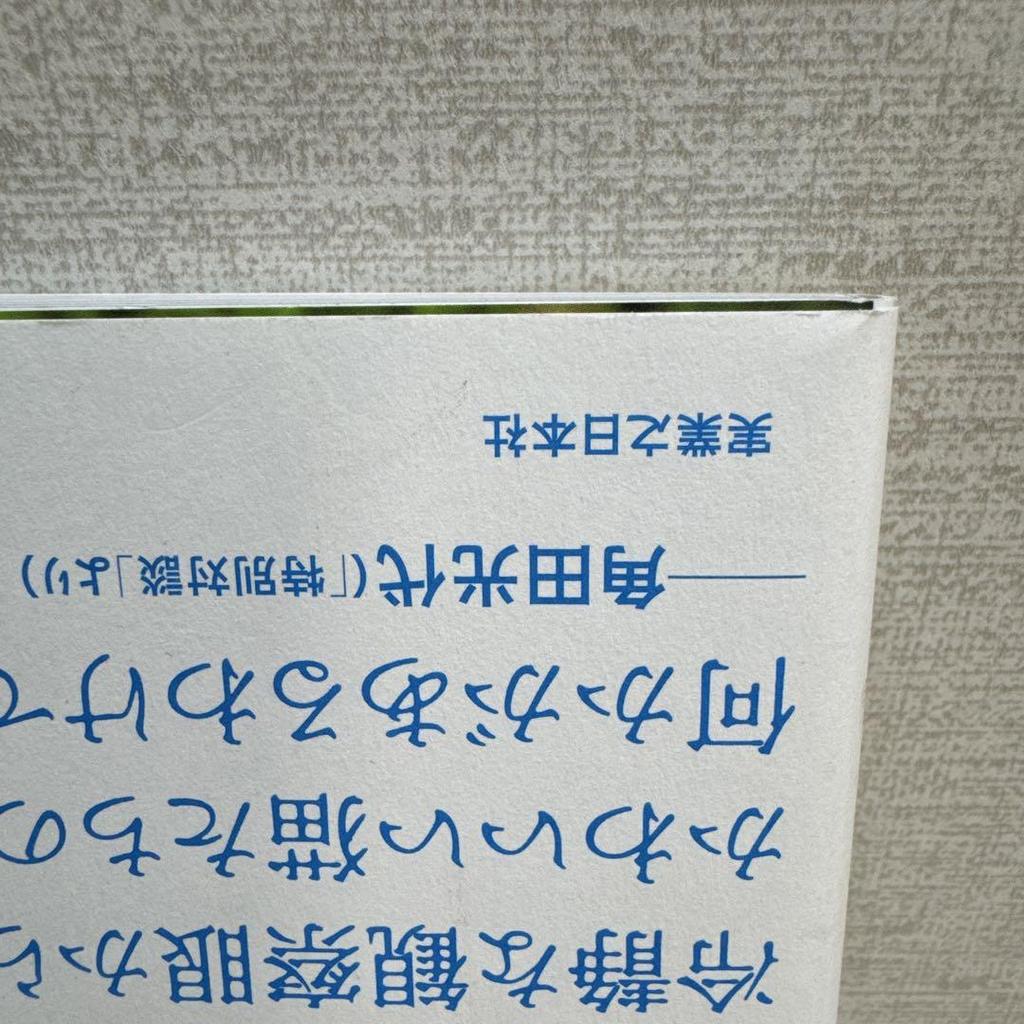 冷静な観察眼から
かわいい猫たちの
何かがあるわけで
――角田光代(「特別対談」より)
実業之日本社